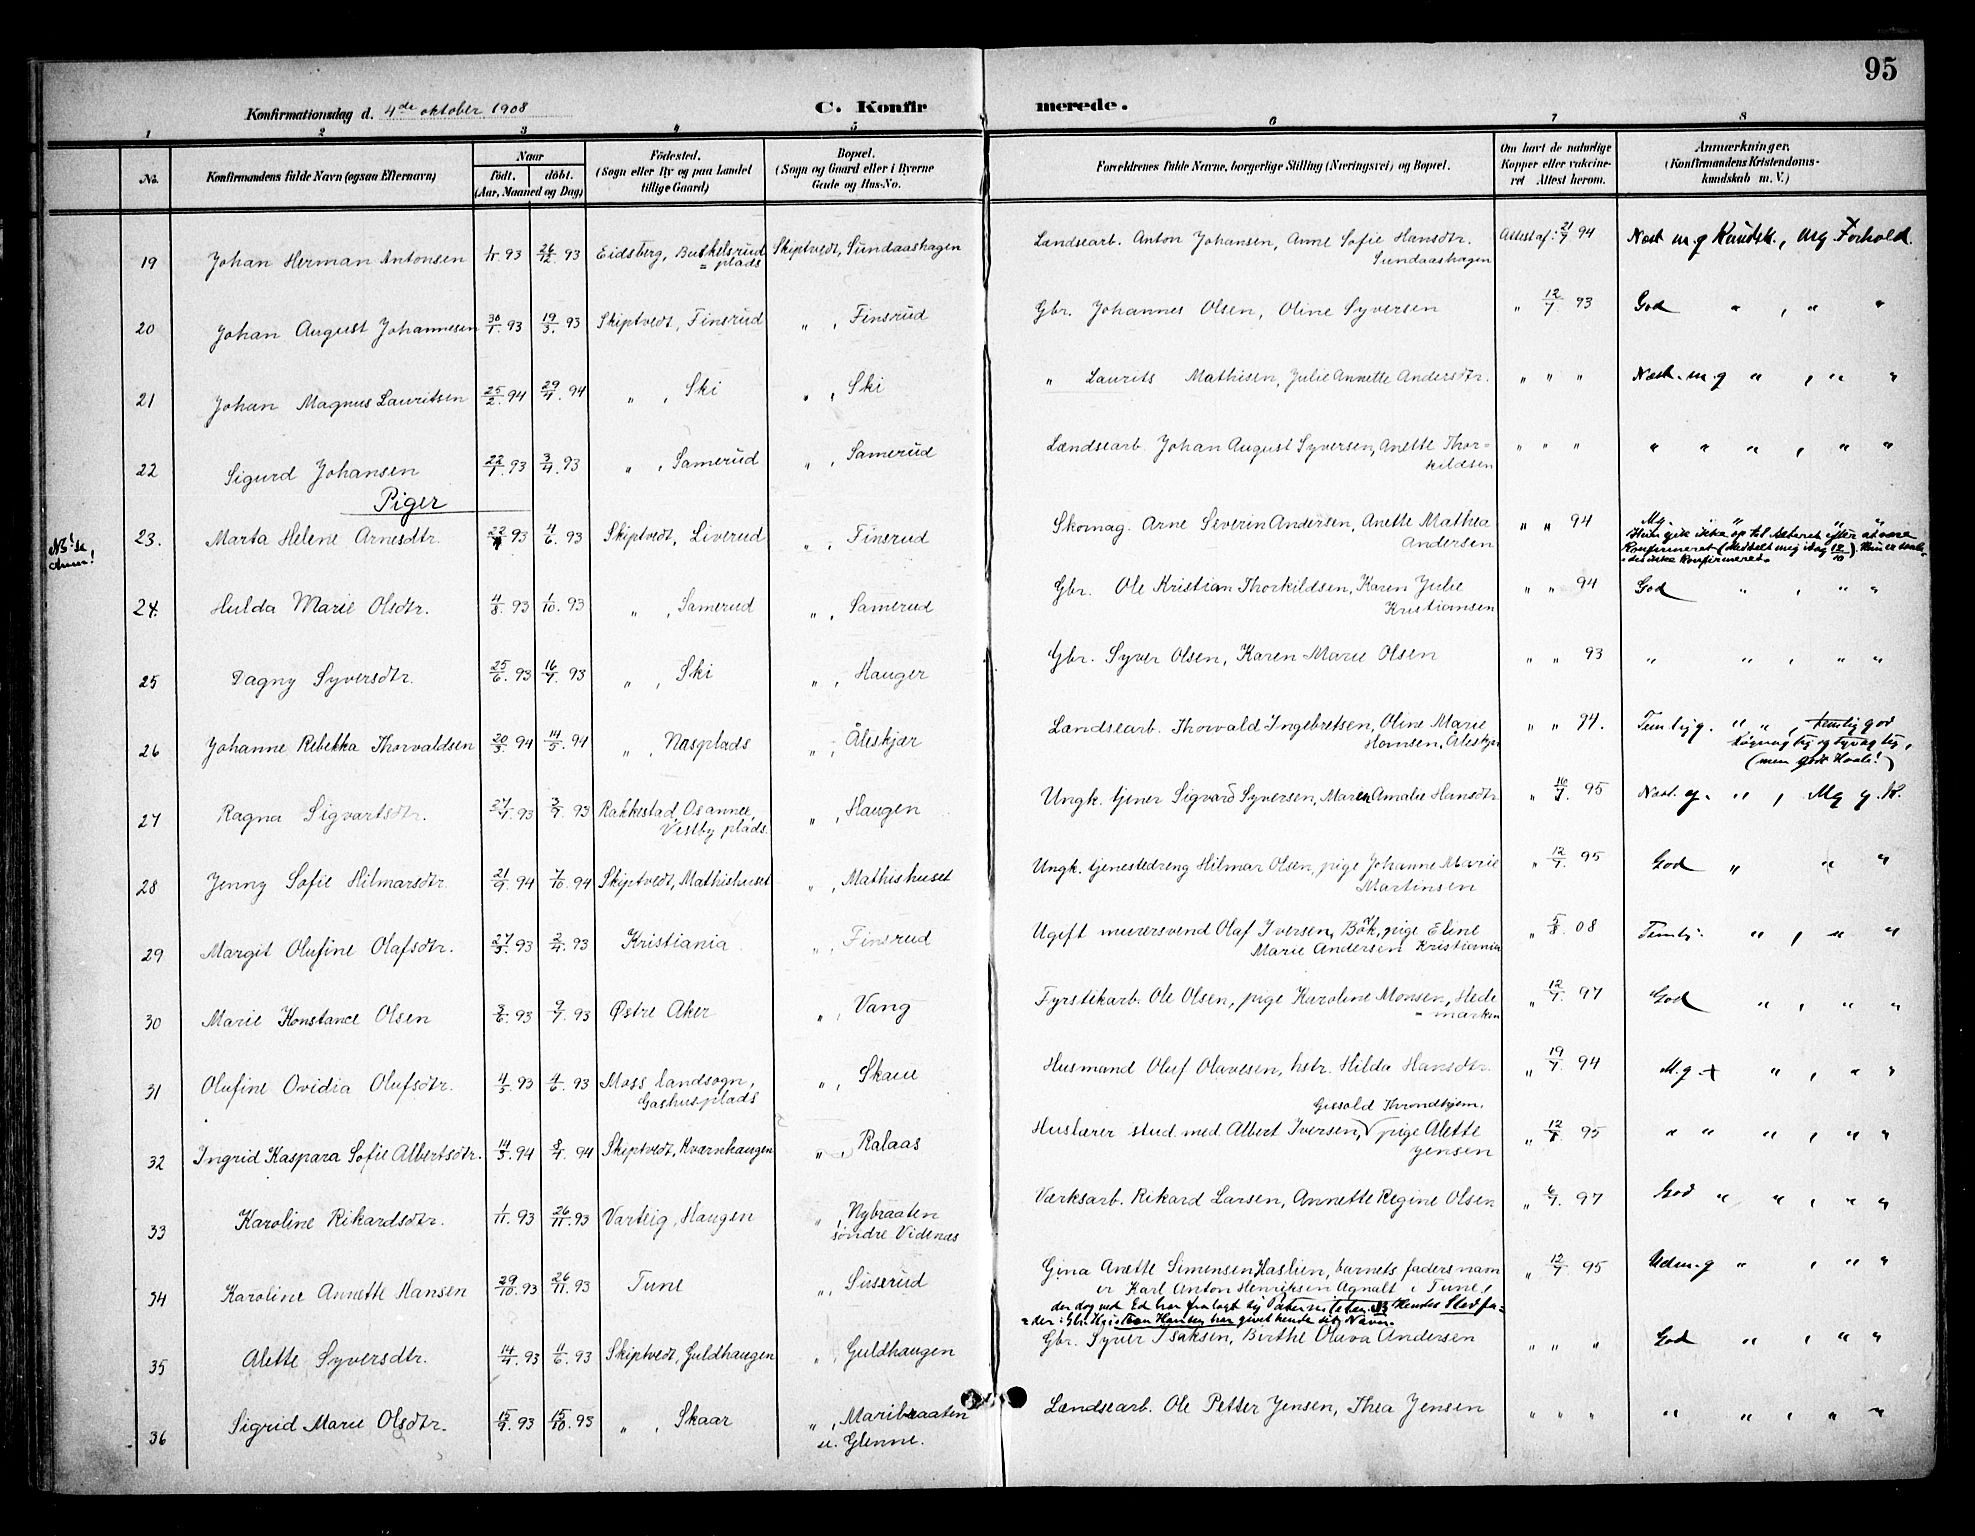 95
Konfirmationsdag d. 4de oktober 1908
C. Konfirmerede.
1 2 3 4 5 6 7 8
No.
Konfirmandens fulde Navn (ogsaa Efternavn)
Naar
födt. döbt.
(Aar, Maaned og Dag)
Födested.
(Sogn eller By og paa Landet
tillige Gaard)
Bopæl.
(Sogn og Gaard eller i Byerne
Gade og Hus-No.
Forældrenes fulde Navne, borgerlige Stilling (Næringsvei) og Bopæl.
Om havt de naturlige
Kopper eller vaccine-
ret Attest herom.
Anmærkninger.
(Konfirmandens Kristendoms-
kundskab m. V.)
19 Johan Herman Antonsen 1/11 93 26/12 93 Eidsberg, Buskelsrud Skiptvedt, Sundaashagen Landsearb. Anton Johansen, Anne Sofie Hansdtr. Attest af: 21/7 94 Næst m. g Kundsk., Mg Forhold.
= plads Sundaashagen
20 Johan August Johannesen 30/1 93 19/3 93 Skiptvedt, Finsrud " , Finsrud Gbr. Johannes Olsen, Oline Syversen " 12/7 93 God " , " "
21 Johan Magnus Lauritsen 25/2 94 29/4 94 " , Ski " , Ski " Laurits Mathisen, Julie Annette Andersdtr. " " " Næst. m. g " , " "
22 Sigurd Johansen 22/1 93 3/4 93 " , Samerud " , Samerud Landsearb. Johan August Syversen, Anette Thor= " " " " " " , " "
kildsen
Piger
NB! se
Anm!
23. Marta Helene Arnesdtr. 22/4 93 4/6 93 Skiptvedt, Liverud " , Finsrud Skomag. Arne Severin Andersen, Anette Mathea " " 94 Mg. " " "
Andersen
Hun gik ikke op til Alteret efter at være
Konfirmeret (Meddelt mig idag 12/10). Hun er saale-
des ikke konfirmeret.
24. Hulda Marie Olsdtr. 4/8 93 1/10 93 " , Samerud " , Samerud Gbr. Ole Kristian Thorkildsen, Karen Julie " " 94 God " , " "
Kristiansen
25 Dagny Syversdtr. 25/6 93 16/7 93 " , Ski " , Hauger Gbr. Syver Olsen, Karen Marie Olsen " " 93 " " , " "
26 Johanne Rebekka Thorvaldsen 20/3 94 14/5 94 " , Nasplads " , Åleskjær Landsearb. Thorvald Ingebretsen, Oline Marie " " 94. Temlig g. " " , temlig god
Hansen, Åleskjær
løgnagtig og tyvagtig,
(men godt Hode!)
27 Ragna Sigvartsdtr. 27/1 93 3/9 93 Rakkestad, Os annex, " , Haugen Ungk. tjener Sigvard Syversen, Maren Amalie Hansdtr " 16/7 95 Næst. g. " , Mg g. K.
Vestby plads.
28 Jenny Sofie Hilmarsdtr. 21/9 94 7/10 94 Skiptvedt, Mathishuset " , Mathishuset Ungk. tjenestedreng Hilmar Olsen, pige Johanne Marie " 12/7 95 God " " "
Martinsen
29 Margit Olufine Olafsdtr. 27/3 93 2/4 93 Kristiania " , Finsrud Ugift murersvend Olaf Iversen, pige Eline " 5/8 08 Temlig. " , " "
Marie Andersen Kristiania
30 Marie Konstance Olsen 3/6 93 9/7 93 Østre Aker " , Vang Fyrstikarb. Ole Olsen, pige Karoline Monsen, Hede " 12/7 97 God " , " "
= marken
31 Olufine Ovidia Olufsdtr. 4/5 93 4/6 93 Moss landsogn, " , Skaue Husmand Oluf Olavesen, hstr. Hilda Hansdtr. " 19/7 94 M. g + " , " "
Gashus plads
Gissold Throndhjem.
32 Ingrid Kaspara Sofie Albertsdtr. 14/3 94 8/4 94 Skiptvedt, Kvarnhaugen " , Ralaas Huslærer stud. med. Albert Iversen, pige Alette " 12/7 95 " " " , " "
Jensen
33 Karoline Rikardsdtr. 1/11 93 26/11 93 Varteig, Haugen " , Nybraaten Værksarb. Rikard Larsen, Annette Regine Olsen " 6/7 97 God " " , " "
søndre Videnæs
34 Karoline Annette Hansen 29/10 93 26/11 93 Tune " , Sisserud Gina Anette Simensen Haslien, barnets faders navn " 12/7 95 Udm. g " , " "
er Karl Anton Henriksen Agnalt i Tune,
der dog ved Ed har fralagt sig Paterniteten. NB Hendes Stedfa=
=der: Gbr. Hans Hansen har givet hende sit Navn.
35 Alette Syversdtr. 14/4 93 11/6 93 Skiptvedt, Guldhaugen " , Guldhaugen Gbr. Syver Isaksen, Birthe Olava Andersen " " " God " , " "
36 Sigrid Marie Olsdtr. 15/9 93 15/10 93 " , Skaar " , Maribraaten Landsearb. Ole Petter Jensen, Thea Jensen " " " " " , " "
u. Glenne.